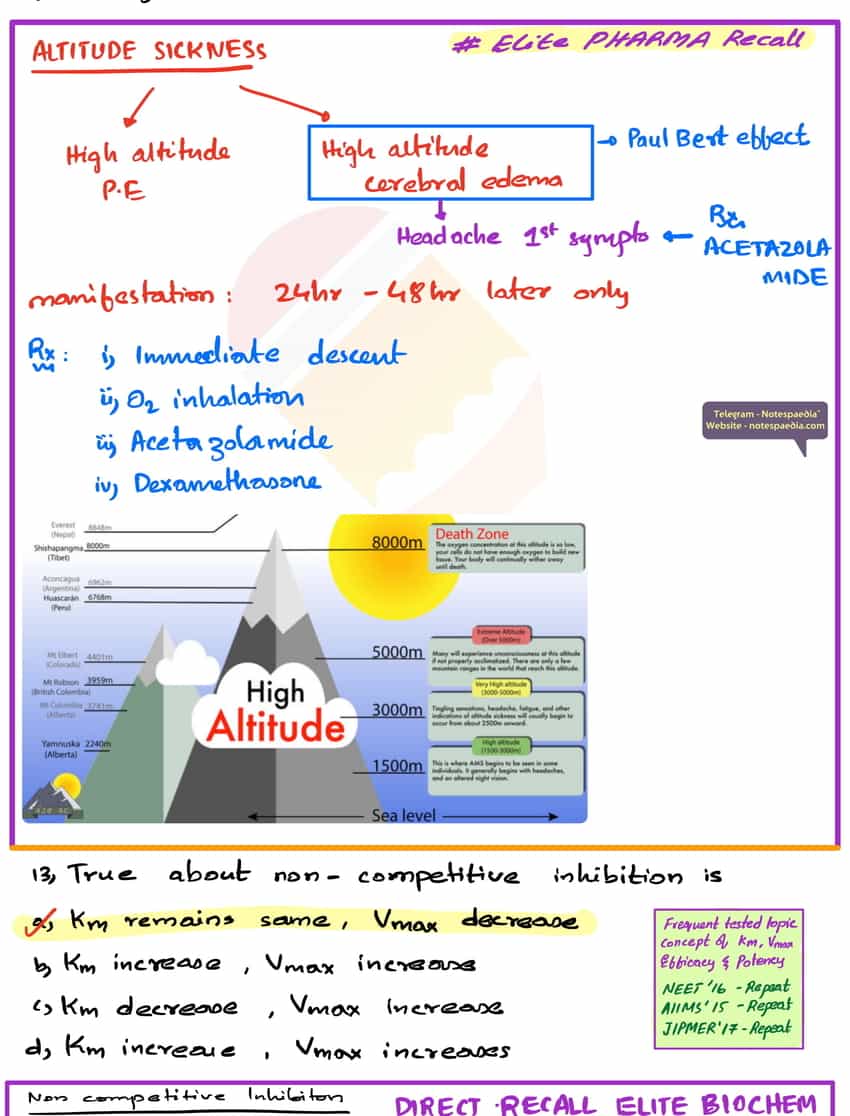 ALTITUDE SICKNESS
# Elite PHARMA Recall
High altitude
P.E
High altitude
cerebral edema
→ Paul Bert effect
Headache 1st sympto ←
Rx
ACETAZOLA
MIDE
manifestation : 24hr - 48hr later only
Rx : i) Immediate descent
ii) O2 inhalation
iii) Acetazolamide
iv) Dexamethasone
Telegram - Notespaedia
Website - notespaedia.com
Everest 8848m
(Nepal)
Shishapangma 8000m
(Tibet)
Aconcagua 6962m
(Argentina)
Huascarán 6768m
(Peru)
Mt Elbert 4401m
(Colorado)
Mt Robson 3959m
(British Colombia)
Mt Colombia 3741m
(Alberta)
Yamnuska 2240m
(Alberta)
High
Altitude
8000m
5000m
3000m
1500m
Sea level
Death Zone
The oxygen concentration at this altitude is so low,
your cells do not have enough oxygen to build new
tissue. Your body will continually wither away
until death.
Extreme Altitude
(Over 5000m)
Many will experience unconsciousness at this altitude
if not properly acclimatized. There are only a few
mountain ranges in the world that reach this altitude.
Very High altitude
(3000-5000m)
Tingling sensations, headache, fatigue, and other
indications of altitude sickness will usually begin to
occur from about 2500m onward.
High altitude
(1500-3000m)
This is where AMS begins to be seen in some
individuals. It generally begins with headaches,
and an altered night vision.
13) True about non-competitive inhibition is
a) Km remains same, Vmax decrease
b) Km increase, Vmax increase
c) Km decrease, Vmax increase
d) Km increase, Vmax increases
Frequent tested topic
concept of Km, Vmax
Efficacy & Potency
NEET '16 - Repeat
AIIMS '15 - Repeat
JIPMER '17 - Repeat
Non competitive Inhibiton
DIRECT RECALL ELITE BIOCHEM